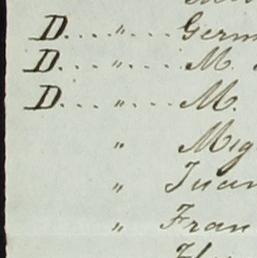 D....〃....Germ
D....〃....M.
D....〃....M.
〃 Mig
〃 Juan
〃 Fran